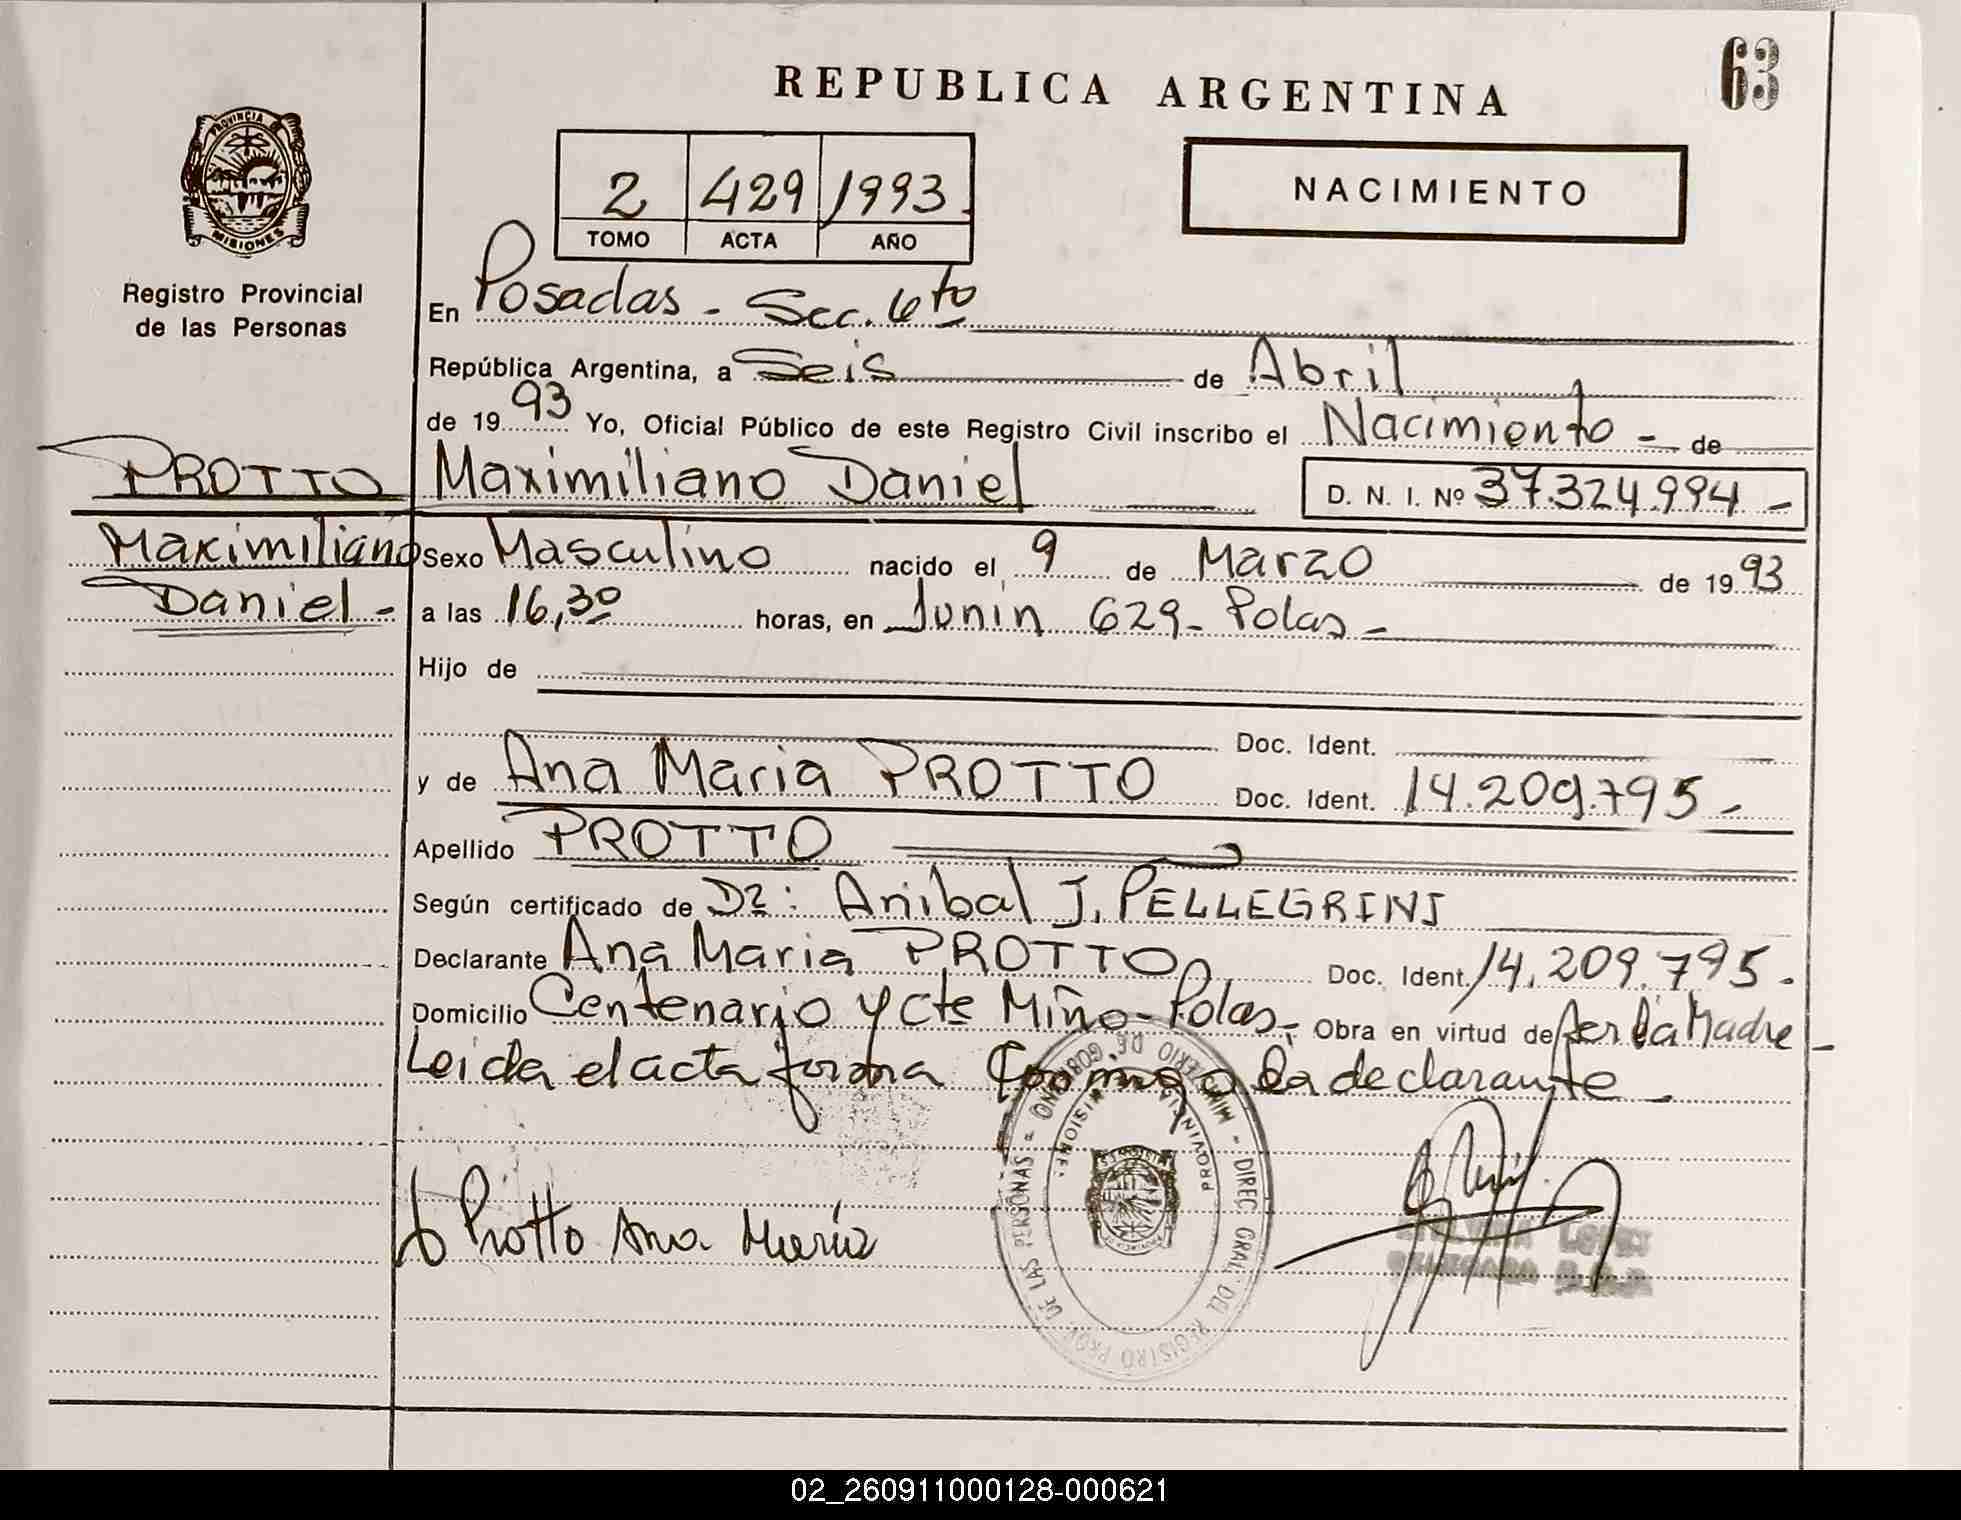 REPUBLICA ARGENTINA
63
PROVINCIA DE
MISIONES
Registro Provincial
de las Personas
2 429 1993
TOMO ACTA AÑO
NACIMIENTO
En Posadas - Sec. 6to
República Argentina, a Seis de Abril
de 19 93 Yo, Oficial Público de este Registro Civil inscribo el Nacimiento - de
PROTTO
Maximiliano Daniel -
Maximiliano Daniel
D. N. I. Nº 37.324.994 -
Sexo Masculino nacido el 9 de Marzo de 19 93
a las 16,30 horas, en Junín 629 - Pdas -
Hijo de
Doc. Ident.
y de Ana Maria PROTTO Doc. Ident. 14.209.795 -
Apellido PROTTO
Según certificado de Dr: Anibal J. PELLEGRINI
Declarante Ana Maria PROTTO Doc. Ident. 14.209.795 -
Domicilio Centenario y Cte Miño - Pdas - Obra en virtud de ser la Madre -
Leida el acta firma conmigo la declarante -
Protto Ana María
MINISTERIO DE GOBIERNO - DIREC. GRAL. DEL REGISTRO PROV. DE LAS PERSONAS -
PROVINCIA MISIONES
02_260911000128-000621